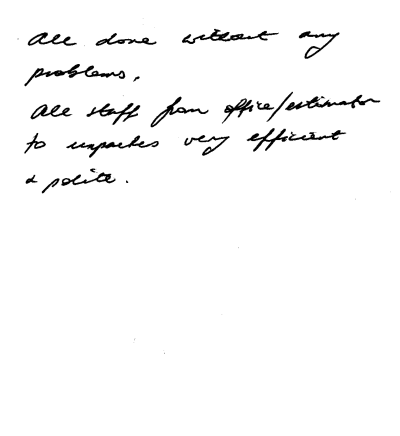 All done without any
problems.
All staff from office/estimator
to unpackers very efficient
& polite.